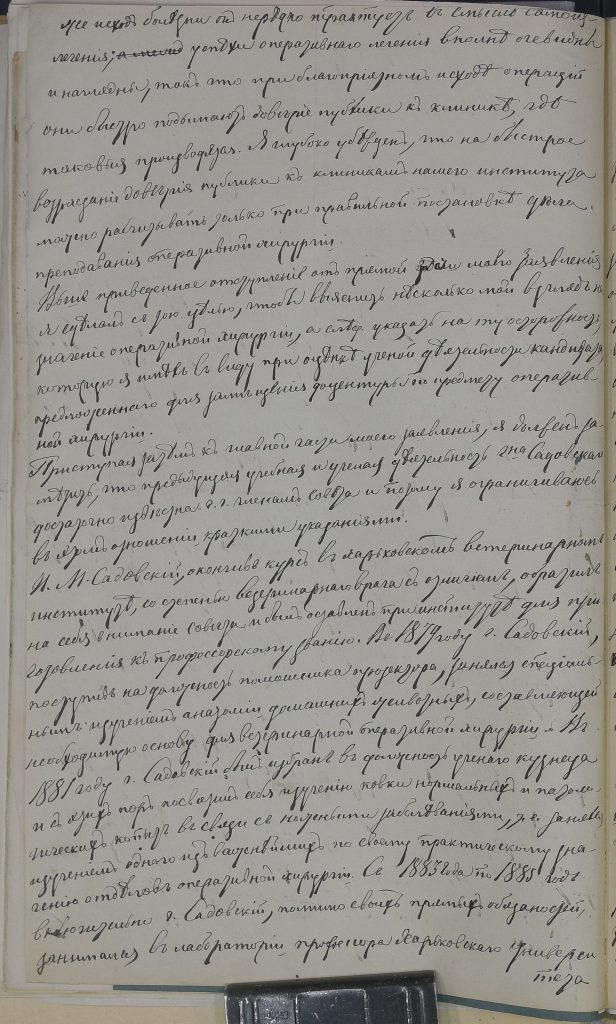 же исходъ болѣзни онъ нерѣдко трактуетъ въ смыслѣ самоиз-
леченія; успѣхи оперативнаго леченія вполнѣ очевидны
и наглядны, такъ что при благопріятномъ исходѣ операцій
они быстро подымаютъ довѣріе публики къ клиникѣ, гдѣ
таковыя производятся. Я глубоко убѣжденъ, что на быстрое
возрастаніе довѣрія публики къ клиникамъ нашего института
можно расчитывать только при правильной постановкѣ дѣла
преподаванія оперативной хирургіи.
Выше приведенное отступленіе отъ прямой моего заявленія
я сдѣлалъ съ тою цѣлью, чтобы выяснить нѣсколько мой взглядъ на
значеніе оперативной хирургіи, а слѣд. указать на ту осторожность,
которую я имѣлъ въ виду при оцѣнкѣ ученой дѣятельности кандидата
предложеннаго для замѣщенія доцентуры по предмету оператив-
ной хирургіи.
Приступая затѣмъ къ главной части моего заявленія, я долженъ за-
мѣтить, что предыдущая учебная и ученая дѣятельность г-на Садовскаго
достаточно извѣстна г. г. членамъ Совѣта и потому я ограничиваюсь
въ этомъ отношеніи краткими указаніями.
И. М. Садовскій, окончивъ курсъ въ Харьковскомъ ветеринарномъ
институтѣ, со степенью ветеринарнаго врача съ отличіемъ, обратилъ
на себя вниманіе Совѣта и былъ оставленъ при институтѣ для при-
готовленія къ профессорскому званію. Въ 1879 году г. Садовскій,
поступивъ на должность помощника прозектора, занялся спеціаль-
нымъ изученіемъ анатоміи домашнихъ животныхъ, составляющей
необходимую основу для ветеринарной оперативной хирургіи. Въ
1881 году г. Садовскій былъ избранъ въ должность ученаго кузнеца
и съ этихъ поръ посвятилъ себя изученію ковки нормальныхъ и патоло-
гическихъ копытъ въ связи съ копытными заболѣваніями, т. е. занялся
изученіемъ одного изъ важнѣйшихъ по своему практическому зна-
ченію отдѣловъ оперативной хирургіи. Съ 1883 года по 1885 годъ
включительно г. Садовскій, помимо своихъ прямыхъ обязаностей,
занимался въ лабораторіи професора Харьковскаго Универси
тета